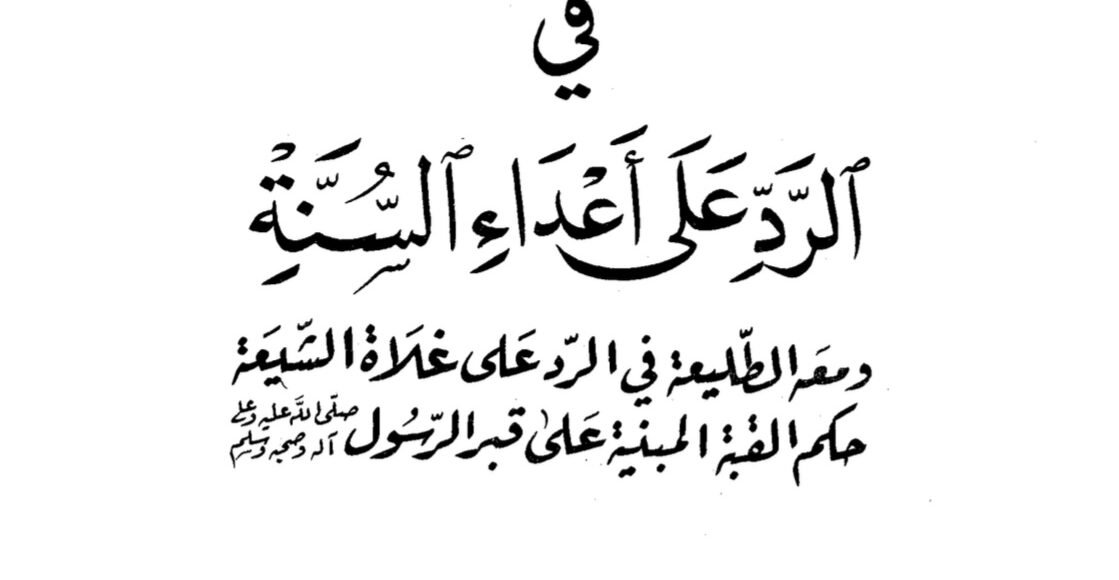 في
ٱلرَّدِّ عَلَى أَعْدَاءِ ٱلسُّنَّةِ
ومعَه الطّليعة في الردّ عَلى غلَاة الشّيعَة
حكم القبّة المبنية عَلىٰ قبر الرّسُول صلّى اللَّه عليه وعلى آله وصحبه وسلم